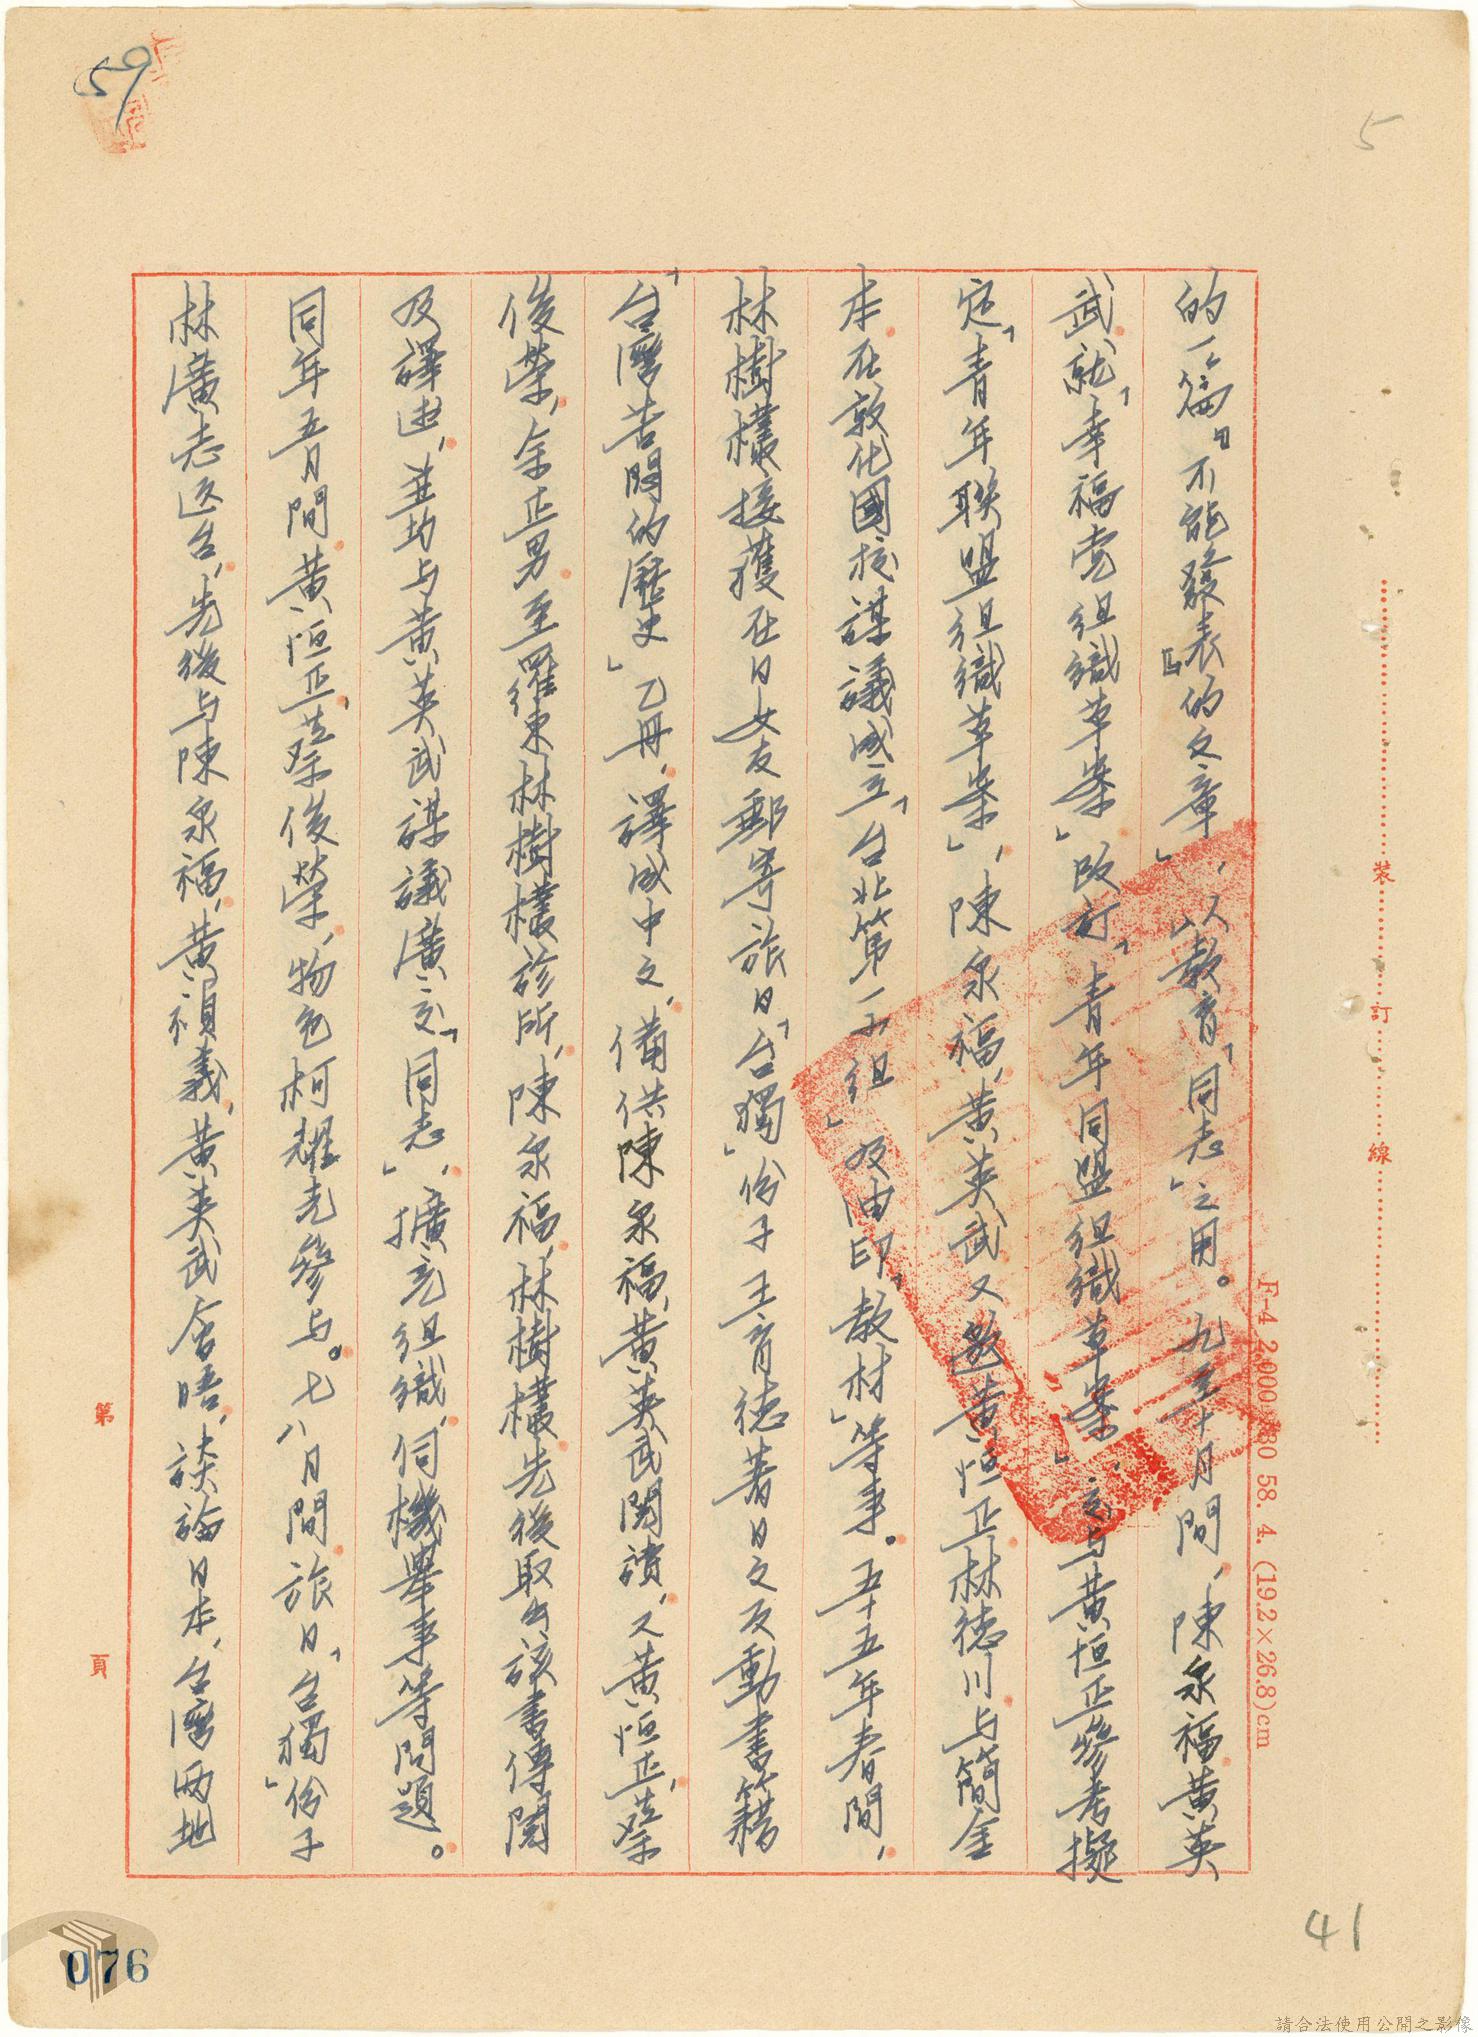 59
5
的一篇『不能發表』的文章」，以教育「同志」之用。九至十月間，陳泉福黃英
武就「幸福党組織草案」改訂「青年同盟組織草案」，交与黃恒正參考擬
定「青年联盟組織草案」，陳泉福、黃英武又邀黃恒正、林德川与簡金
本在敦化國校謀議成立「台北第一小組」及油印「教材」等事。五十五年春間，
林樹欉接獲在日女友郵寄旅日「台獨」份子王育德著日文反動書籍
「台灣苦悶的歷史」乙冊，譯成中文，備供陳泉福、黃英武閱讀，又黃恒正、蔡
俊榮、余正男至羅東林樹欉診所，陳泉福、林樹欉先後取出該書傳閱
及譯述，並均与黃英武謀議廣交「同志」，擴充組織，伺機舉事等問題。
同年五月間黃恒正、蔡俊榮，物色柯耀光參与。七八月間旅日「台獨」份子
林廣志返台，先後与陳泉福、黃碩義、黃英武會晤，談論日本、台灣兩地
裝
訂
線
F-4 2,000 30 58. 4. (19.2×26.8)cm
第
頁
41
076
請合法使用公開之影像